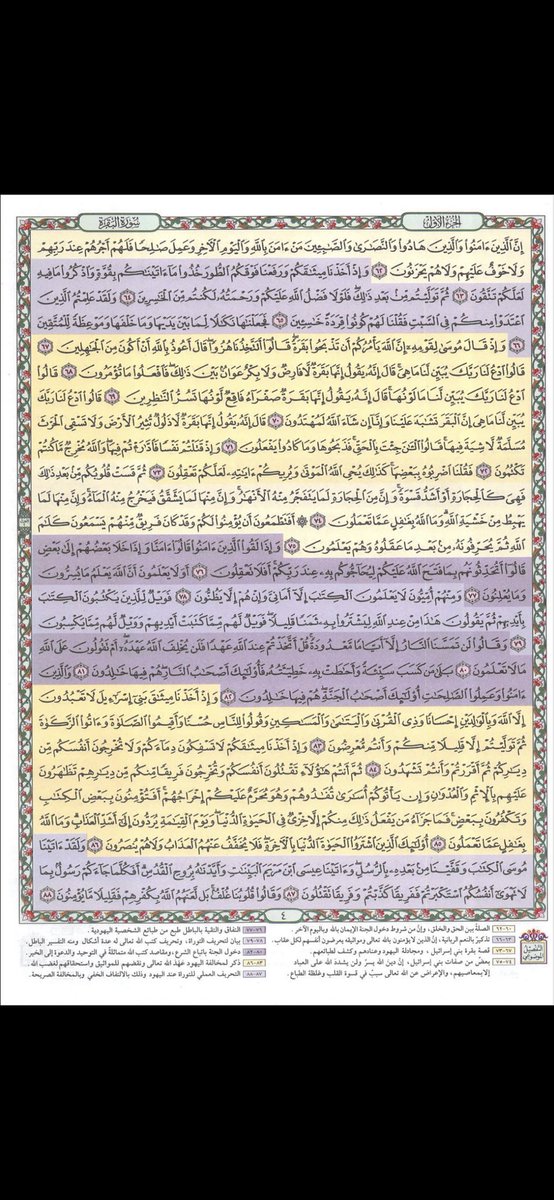 الجزء الأول
سورة البقرة
إِنَّ الَّذِينَ ءَامَنُوا وَالَّذِينَ هَادُوا وَالنَّصَارَىٰ وَالصَّابِئِينَ مَنْ ءَامَنَ بِاللَّهِ وَالْيَوْمِ الْآخِرِ وَعَمِلَ صَالِحًا فَلَهُمْ أَجْرُهُمْ عِندَ رَبِّهِمْ
وَلَا خَوْفٌ عَلَيْهِمْ وَلَا هُمْ يَحْزَنُونَ ٦٢ وَإِذْ أَخَذْنَا مِيثَاقَكُمْ وَرَفَعْنَا فَوْقَكُمُ الطُّورَ خُذُوا مَا ءَاتَيْنَاكُم بِقُوَّةٍ وَاذْكُرُوا مَا فِيهِ
لَعَلَّكُمْ تَتَّقُونَ ٦٣ ثُمَّ تَوَلَّيْتُم مِّنۢ بَعْدِ ذَٰلِكَ فَلَوْلَا فَضْلُ اللَّهِ عَلَيْكُمْ وَرَحْمَتُهُ لَكُنتُم مِّنَ الْخَاسِرِينَ ٦٤ وَلَقَدْ عَلِمْتُمُ الَّذِينَ
اعْتَدَوْا مِنكُمْ فِي السَّبْتِ فَقُلْنَا لَهُمْ كُونُوا قِرَدَةً خَاسِئِينَ ٦٥ فَجَعَلْنَاهَا نَكَالًا لِّمَا بَيْنَ يَدَيْهَا وَمَا خَلْفَهَا وَمَوْعِظَةً لِّلْمُتَّقِينَ
٦٦ وَإِذْ قَالَ مُوسَىٰ لِقَوْمِهِ إِنَّ اللَّهَ يَأْمُرُكُمْ أَن تَذْبَحُوا بَقَرَةً قَالُوا أَتَتَّخِذُنَا هُزُوًا قَالَ أَعُوذُ بِاللَّهِ أَنْ أَكُونَ مِنَ الْجَاهِلِينَ ٦٧
قَالُوا ادْعُ لَنَا رَبَّكَ يُبَيِّن لَّنَا مَا هِيَ قَالَ إِنَّهُ يَقُولُ إِنَّهَا بَقَرَةٌ لَّا فَارِضٌ وَلَا بِكْرٌ عَوَانٌ بَيْنَ ذَٰلِكَ فَافْعَلُوا مَا تُؤْمَرُونَ ٦٨ قَالُوا
ادْعُ لَنَا رَبَّكَ يُبَيِّن لَّنَا مَا لَوْنُهَا قَالَ إِنَّهُ يَقُولُ إِنَّهَا بَقَرَةٌ صَفْرَاءُ فَاقِعٌ لَّوْنُهَا تَسُرُّ النَّاظِرِينَ ٦٩ قَالُوا ادْعُ لَنَا رَبَّكَ
يُبَيِّن لَّنَا مَا هِيَ إِنَّ الْبَقَرَ تَشَابَهَ عَلَيْنَا وَإِنَّا إِن شَاءَ اللَّهُ لَمُهْتَدُونَ ٧٠ قَالَ إِنَّهُ يَقُولُ إِنَّهَا بَقَرَةٌ لَّا ذَلُولٌ تُثِيرُ الْأَرْضَ وَلَا تَسْقِي الْحَرْثَ
مُسَلَّمَةٌ لَّا شِيَةَ فِيهَا قَالُوا الْآنَ جِئْتَ بِالْحَقِّ فَذَبَحُوهَا وَمَا كَادُوا يَفْعَلُونَ ٧١ وَإِذْ قَتَلْتُمْ نَفْسًا فَادَّارَأْتُمْ فِيهَا وَاللَّهُ مُخْرِجٌ مَّا كُنتُمْ
تَكْتُمُونَ ٧٢ فَقُلْنَا اضْرِبُوهُ بِبَعْضِهَا كَذَٰلِكَ يُحْيِ اللَّهُ الْمَوْتَىٰ وَيُرِيكُمْ ءَايَاتِهِ لَعَلَّكُمْ تَعْقِلُونَ ٧٣ ثُمَّ قَسَتْ قُلُوبُكُم مِّنۢ بَعْدِ ذَٰلِكَ
فَهِيَ كَالْحِجَارَةِ أَوْ أَشَدُّ قَسْوَةً وَإِنَّ مِنَ الْحِجَارَةِ لَمَا يَتَفَجَّرُ مِنْهُ الْأَنْهَارُ وَإِنَّ مِنْهَا لَمَا يَشَّقَّقُ فَيَخْرُجُ مِنْهُ الْمَاءُ وَإِنَّ مِنْهَا لَمَا
يَهْبِطُ مِنْ خَشْيَةِ اللَّهِ وَمَا اللَّهُ بِغَافِلٍ عَمَّا تَعْمَلُونَ ٧٤ ۞ أَفَتَطْمَعُونَ أَن يُؤْمِنُوا لَكُمْ وَقَدْ كَانَ فَرِيقٌ مِّنْهُمْ يَسْمَعُونَ كَلَامَ
اللَّهِ ثُمَّ يُحَرِّفُونَهُ مِنۢ بَعْدِ مَا عَقَلُوهُ وَهُمْ يَعْلَمُونَ ٧٥ وَإِذَا لَقُوا الَّذِينَ ءَامَنُوا قَالُوا ءَامَنَّا وَإِذَا خَلَا بَعْضُهُمْ إِلَىٰ بَعْضٍ
قَالُوا أَتُحَدِّثُونَهُم بِمَا فَتَحَ اللَّهُ عَلَيْكُمْ لِيُحَاجُّوكُم بِهِ عِندَ رَبِّكُمْ أَفَلَا تَعْقِلُونَ ٧٦ أَوَلَا يَعْلَمُونَ أَنَّ اللَّهَ يَعْلَمُ مَا يُسِرُّونَ
وَمَا يُعْلِنُونَ ٧٧ وَمِنْهُمْ أُمِّيُّونَ لَا يَعْلَمُونَ الْكِتَابَ إِلَّا أَمَانِيَّ وَإِنْ هُمْ إِلَّا يَظُنُّونَ ٧٨ فَوَيْلٌ لِّلَّذِينَ يَكْتُبُونَ الْكِتَابَ
بِأَيْدِيهِمْ ثُمَّ يَقُولُونَ هَٰذَا مِنْ عِندِ اللَّهِ لِيَشْتَرُوا بِهِ ثَمَنًا قَلِيلًا فَوَيْلٌ لَّهُم مِّمَّا كَتَبَتْ أَيْدِيهِمْ وَوَيْلٌ لَّهُم مِّمَّا يَكْسِبُونَ
٧٩ وَقَالُوا لَن تَمَسَّنَا النَّارُ إِلَّا أَيَّامًا مَّعْدُودَةً قُلْ أَتَّخَذْتُمْ عِندَ اللَّهِ عَهْدًا فَلَن يُخْلِفَ اللَّهُ عَهْدَهُ أَمْ تَقُولُونَ عَلَى اللَّهِ
مَا لَا تَعْلَمُونَ ٨٠ بَلَىٰ مَن كَسَبَ سَيِّئَةً وَأَحَاطَتْ بِهِ خَطِيئَتُهُ فَأُولَٰئِكَ أَصْحَابُ النَّارِ هُمْ فِيهَا خَالِدُونَ ٨١ وَالَّذِينَ
ءَامَنُوا وَعَمِلُوا الصَّالِحَاتِ أُولَٰئِكَ أَصْحَابُ الْجَنَّةِ هُمْ فِيهَا خَالِدُونَ ٨٢ وَإِذْ أَخَذْنَا مِيثَاقَ بَنِي إِسْرَائِيلَ لَا تَعْبُدُونَ
إِلَّا اللَّهَ وَبِالْوَالِدَيْنِ إِحْسَانًا وَذِي الْقُرْبَىٰ وَالْيَتَامَىٰ وَالْمَسَاكِينِ وَقُولُوا لِلنَّاسِ حُسْنًا وَأَقِيمُوا الصَّلَاةَ وَءَاتُوا الزَّكَاةَ
ثُمَّ تَوَلَّيْتُمْ إِلَّا قَلِيلًا مِّنكُمْ وَأَنتُم مُّعْرِضُونَ ٨٣ وَإِذْ أَخَذْنَا مِيثَاقَكُمْ لَا تَسْفِكُونَ دِمَاءَكُمْ وَلَا تُخْرِجُونَ أَنفُسَكُم مِّن
دِيَارِكُمْ ثُمَّ أَقْرَرْتُمْ وَأَنتُمْ تَشْهَدُونَ ٨٤ ثُمَّ أَنتُمْ هَٰؤُلَاءِ تَقْتُلُونَ أَنفُسَكُمْ وَتُخْرِجُونَ فَرِيقًا مِّنكُم مِّن دِيَارِهِمْ تَظَاهَرُونَ
عَلَيْهِم بِالْإِثْمِ وَالْعُدْوَانِ وَإِن يَأْتُوكُمْ أُسَارَىٰ تُفَادُوهُمْ وَهُوَ مُحَرَّمٌ عَلَيْكُمْ إِخْرَاجُهُمْ أَفَتُؤْمِنُونَ بِبَعْضِ الْكِتَابِ
وَتَكْفُرُونَ بِبَعْضٍ فَمَا جَزَاءُ مَن يَفْعَلُ ذَٰلِكَ مِنكُمْ إِلَّا خِزْيٌ فِي الْحَيَاةِ الدُّنْيَا وَيَوْمَ الْقِيَامَةِ يُرَدُّونَ إِلَىٰ أَشَدِّ الْعَذَابِ وَمَا اللَّهُ
بِغَافِلٍ عَمَّا تَعْمَلُونَ ٨٥ أُولَٰئِكَ الَّذِينَ اشْتَرَوُا الْحَيَاةَ الدُّنْيَا بِالْآخِرَةِ فَلَا يُخَفَّفُ عَنْهُمُ الْعَذَابُ وَلَا هُمْ يُنصَرُونَ ٨٦ وَلَقَدْ ءَاتَيْنَا
مُوسَى الْكِتَابَ وَقَفَّيْنَا مِنۢ بَعْدِهِ بِالرُّسُلِ وَءَاتَيْنَا عِيسَى ابْنَ مَرْيَمَ الْبَيِّنَاتِ وَأَيَّدْنَاهُ بِرُوحِ الْقُدُسِ أَفَكُلَّمَا جَاءَكُمْ رَسُولٌ بِمَا
لَا تَهْوَىٰ أَنفُسُكُمُ اسْتَكْبَرْتُمْ فَفَرِيقًا كَذَّبْتُمْ وَفَرِيقًا تَقْتُلُونَ ٨٧ وَقَالُوا قُلُوبُنَا غُلْفٌ بَل لَّعَنَهُمُ اللَّهُ بِكُفْرِهِمْ فَقَلِيلًا مَّا يُؤْمِنُونَ ٨٨
٤
٦٠-٦٢ الصلة بين الحق والخلق، وإن من شروط دخول الجنة الإيمان بالله وباليوم الآخر.
٦٣-٦٦ تذكير بالنعم الربانية، إن الذين لا يوفون بالله تعالى ومواثيقه يعرضون أنفسهم لكل عقاب.
٦٧-٧٣ قصة بقرة بني إسرائيل، ومجادلة اليهود وعنادهم وكشف لطبائعهم.
٧٤-٧٥ بعض من صفات بني إسرائيل، إن دين الله يسر ولن يشدد الله على العباد
إلا بمعاصيهم، والإعراض عن الله تعالى سبب في قسوة القلب وغلظة الطباع.
٧٦-٧٧ النفاق والتقية بالباطل طبع من طبائع الشخصية اليهودية.
٧٨-٧٩ بيان لتحريف التوراة، وتحريف كتب الله تعالى له عدة أشكال ومنه التفسير الباطل.
٨٠-٨٢ دخول الجنة باتباع الشرع، ومقاصد كتب الله متماثلة في التوحيد والدعوة إلى الخير.
٨٣-٨٦ ذكر لمخالفة اليهود عهد الله تعالى ونقضهم للمواثيق واستحقاقهم لغضب الله.
٨٧-٨٨ التحريف العملي للتوراة عند اليهود وذلك بالالتفاف الخفي وبالمخالفة الصريحة.
التفصيل الموضوعي